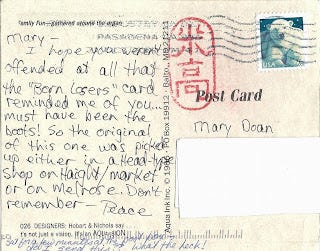 Family Fun—gathered around the organ
PASADENA
Mary—
I hope you weren't
offended at all that
the "Born Losers" card
reminded me of you..
must have been the
boots! So the original
of this one was picked
up either in a Head-type
shop on Haight/market
or on Melrose. Don't
remember — Peace
026 DESIGNERS: Hobart & Nichols say
it's not just a vision,
do I send this?
what the heck!
Aqua Ink Inc. © 19
PO Box 19912 - Balto., MD 21211
USA
Post Card
Mary Doan